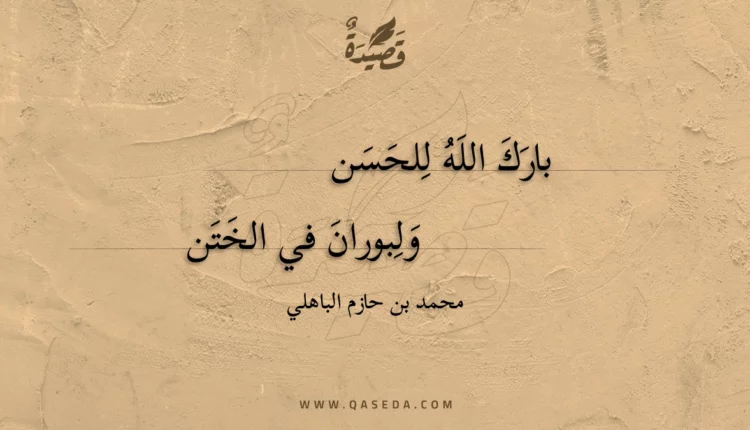 قَصِيدَةٌ
بارَكَ اللَهُ لِلحَسَن
وَلِبورانَ في الخَتَن
محمد بن حازم الباهلي
WWW.QASEDA.COM